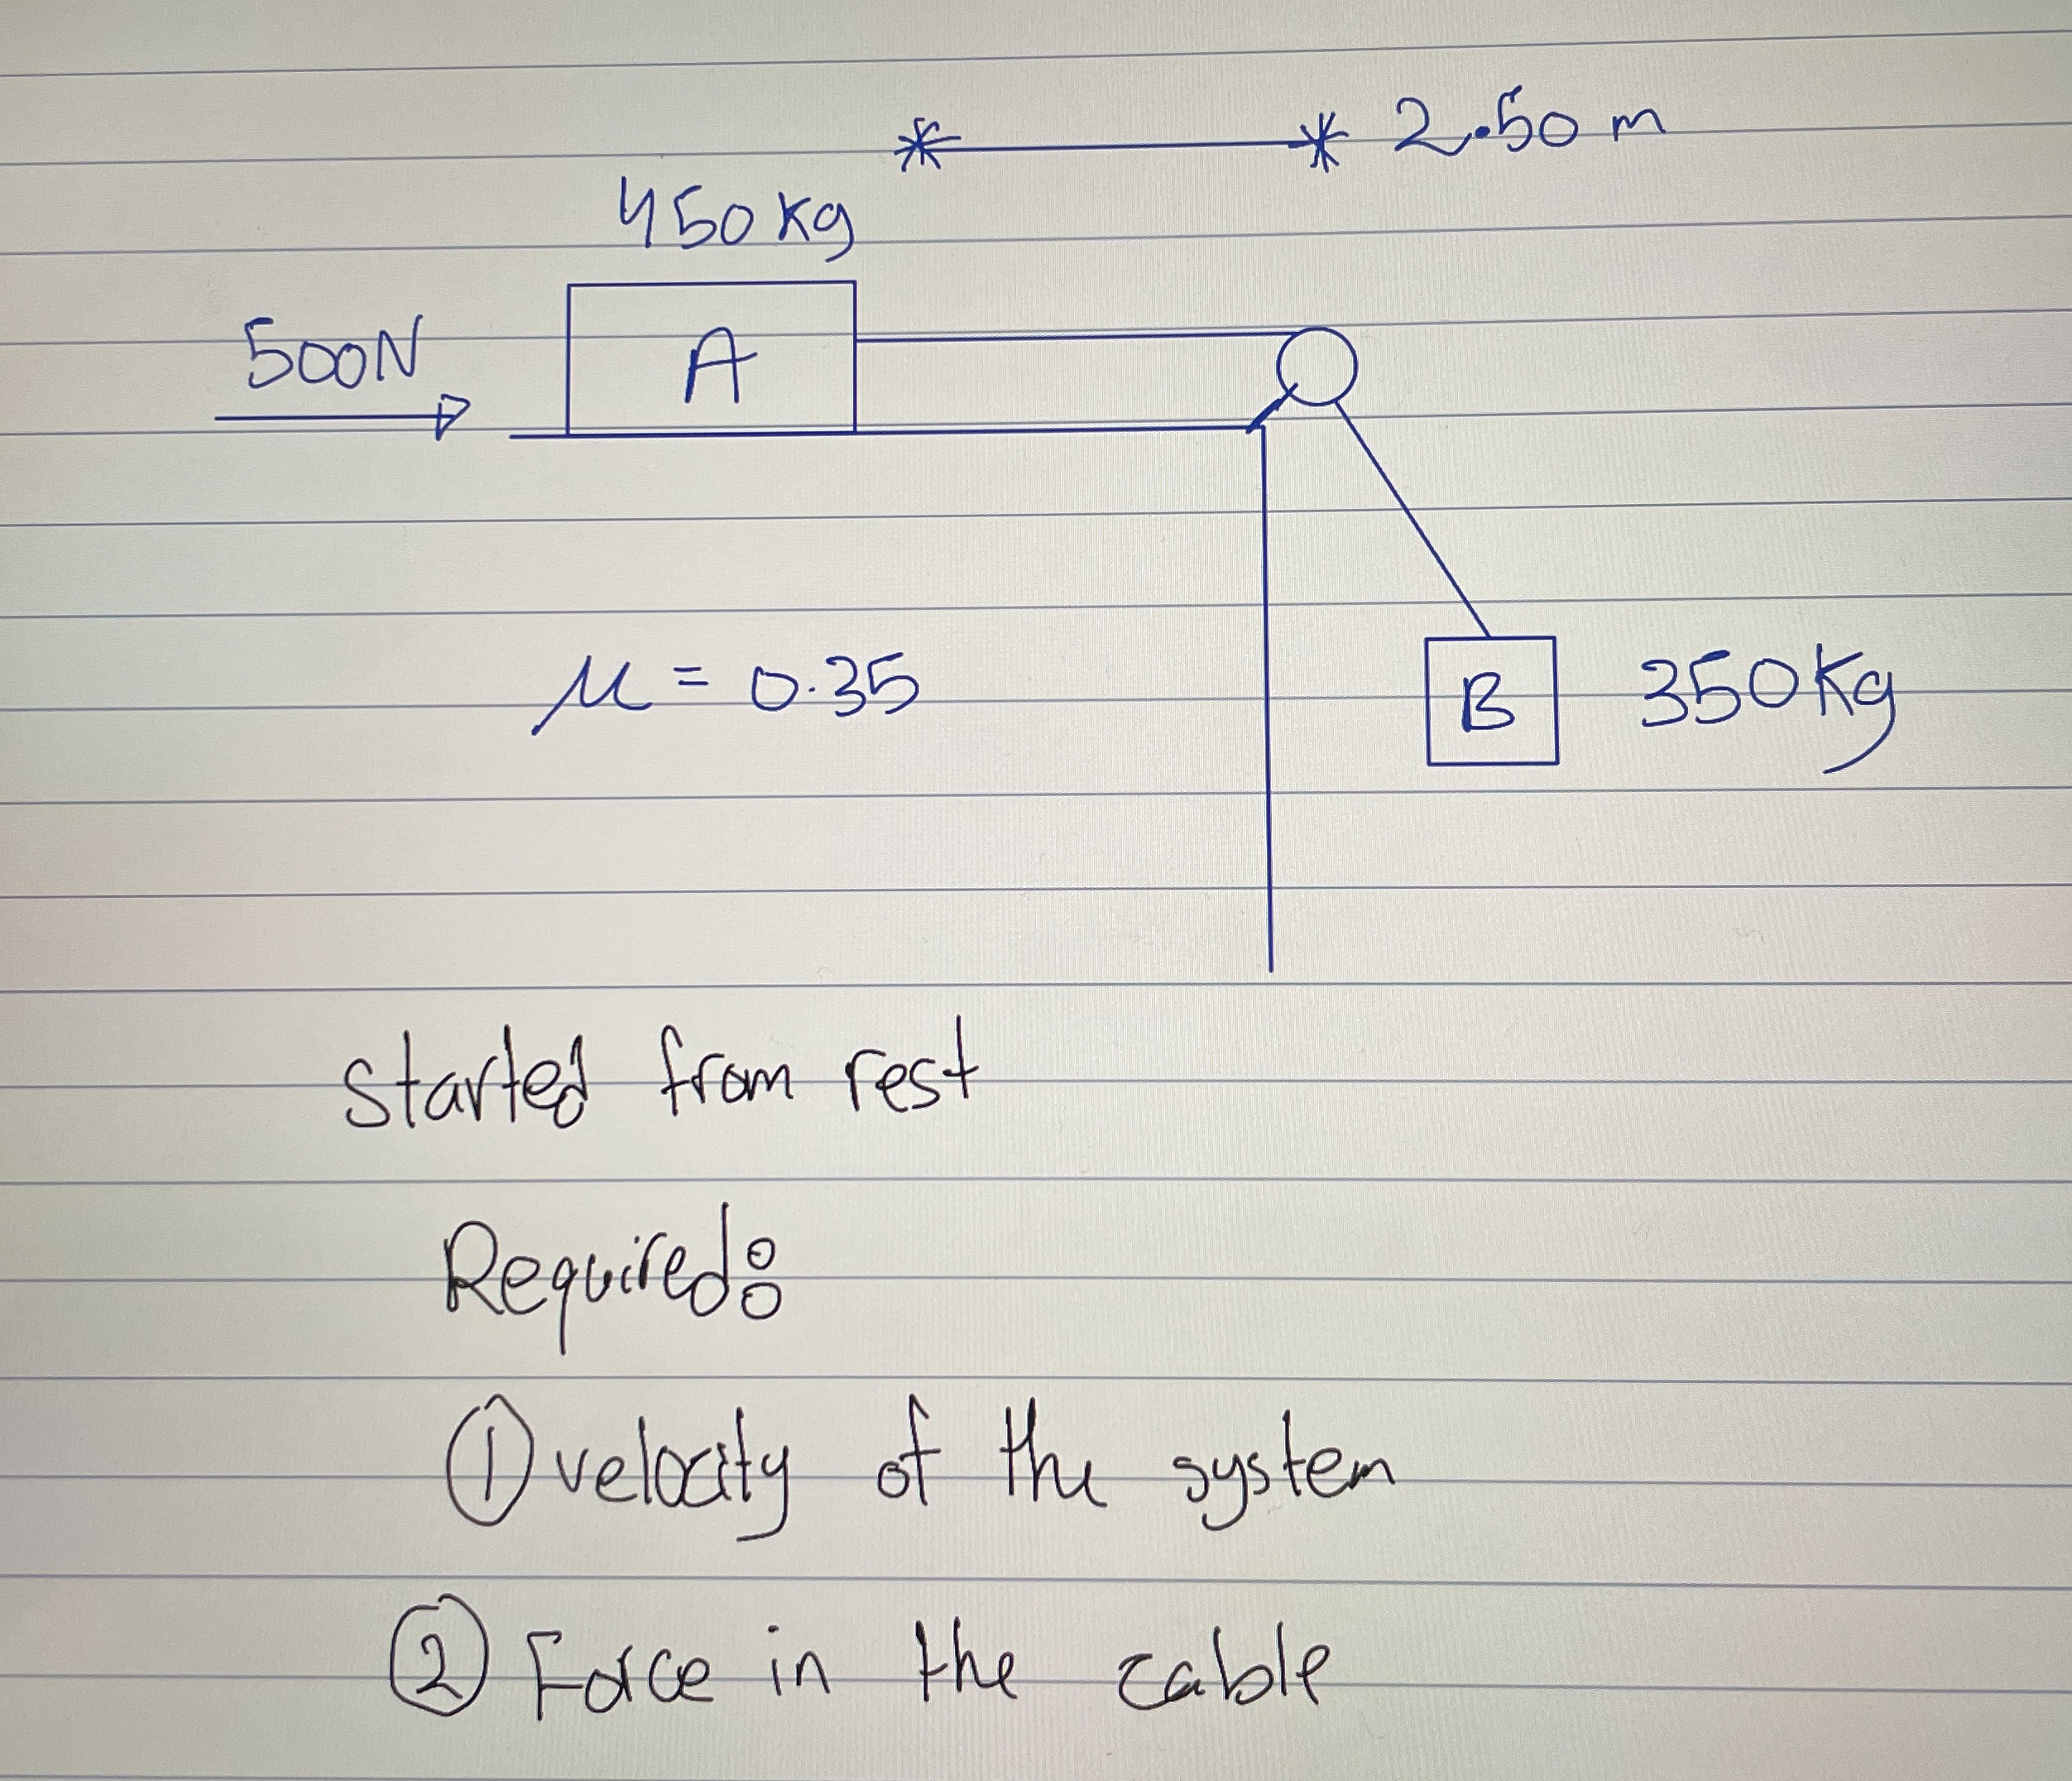 2.50 m
450 kg
500N
A
μ = 0.35
B
350Kg
started from rest
Required:
① velocity of the system
② Force in the cable